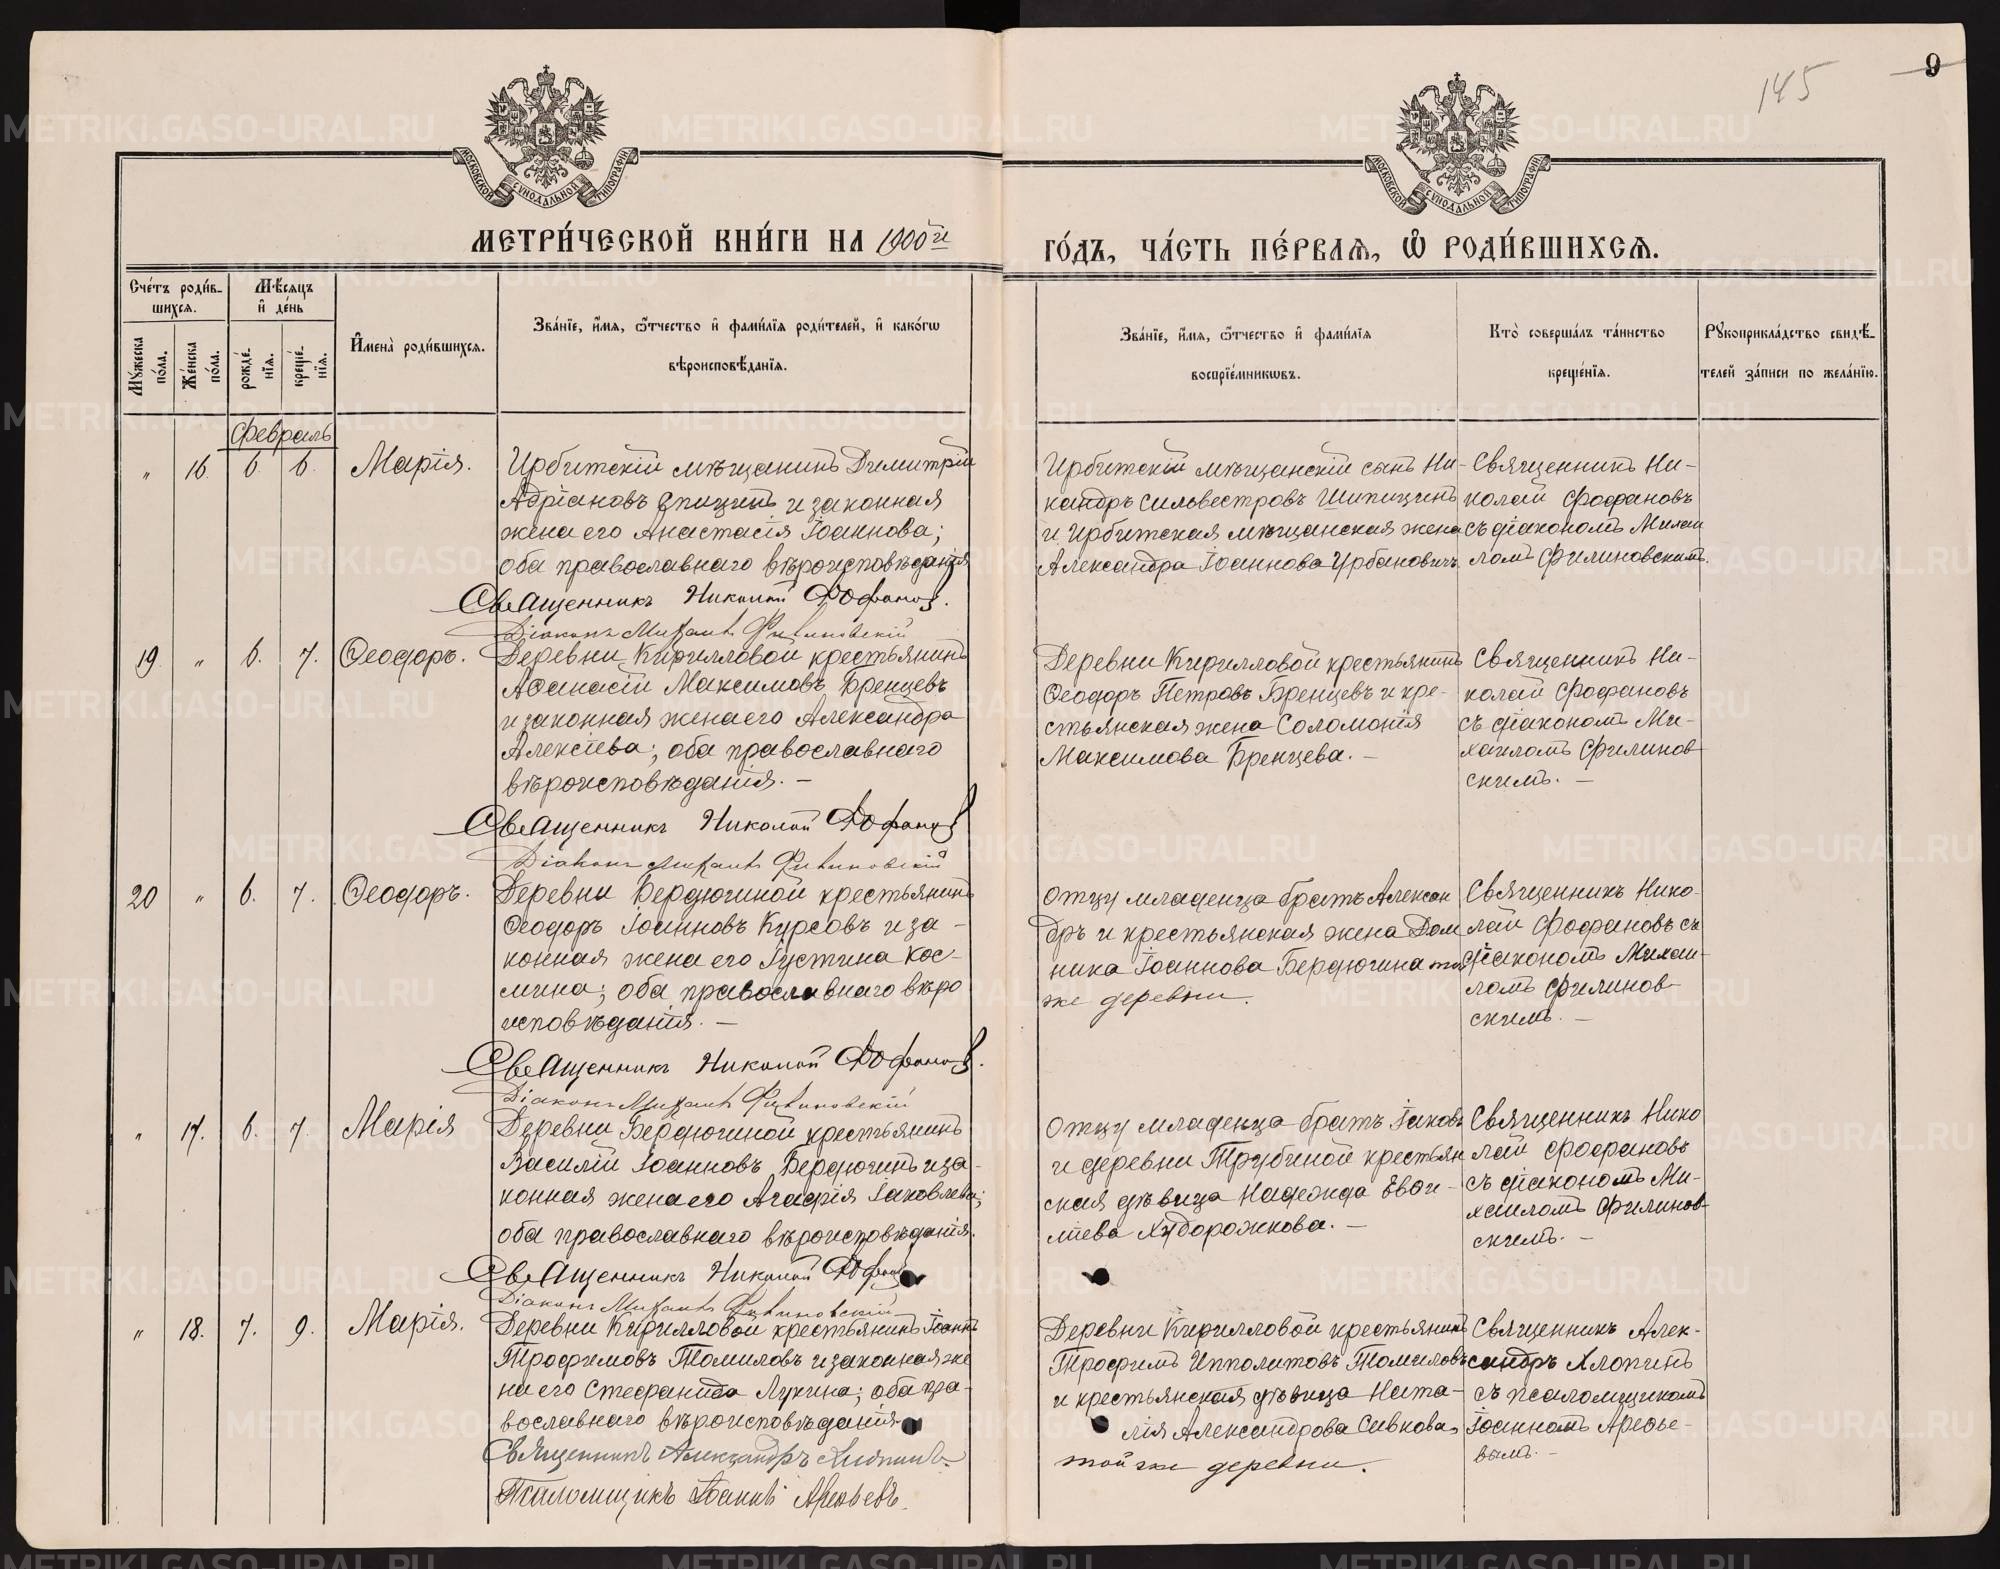 145
9
МОСКОВСКОЙ СѴНОДАЛЬНОЙ ТИПОГРАФІИ
МОСКОВСКОЙ СѴНОДАЛЬНОЙ ТИПОГРАФІИ
МЕТРИ́ЧЕСКОЙ КНИ́ГИ НА 1900й
ГО́ДЪ, ЧА́СТЬ ПЕ́РВАѦ, Ѽ РОДИ́ВШИХСѦ.
Сче́тъ роди́в-
шихсѧ.
Мѣсѧцъ
и҆ де́нь
Мꙋ́жеска
по́ла.
Же́нска
по́ла.
рожде́-
нїѧ.
креще́-
нїѧ.
И҆мена̀ роди́вшихсѧ.
Зва́нїе, и҆́мѧ, ѻ҆́тчество и҆ фами́лїѧ роди́телей, и҆ како́гѡ
вѣроисповѣ́данїѧ.
Зва́нїе, и҆́мѧ, ѻ҆́тчество и҆ фами́лїѧ
воспрїе́мникѡвъ.
Кто̀ соверша́лъ та́инство
креще́нїѧ.
Рꙋкоприкла́дство свидѣ́-
телей за́писи по жела́нїю.
Февраль
" 16. 6. 6. Марія.
Ирбитскій мѣщанинъ Димитрій
Адріановъ Спицинъ и законная
жена его Анастасія Іоаннова;
оба православнаго вѣроисповѣданія
Священникъ Николай Фофановъ.
Діаконъ Михаилъ Филиновскій
Ирбитскій мѣщанскій сынъ Ни-
кандръ Сильвестровъ Шипицинъ
и Ирбитская мѣщанская жена
Александра Іоаннова Урбановичъ.
Священникъ Ни-
колай Фофановъ
съ діакономъ Михаи
ломъ Филиновскимъ.
19. " 6. 7. Ѳеодоръ.
Деревни Кирилловой крестьянинъ
Аѳанасій Максимовъ Бренцевъ
и законная жена его Александра
Алексіева; оба православнаго
вѣроисповѣданія. —
Священникъ Николай Фофановъ
Діаконъ Михаилъ Филиновскій
Деревни Кирилловой крестьянинъ
Ѳеодоръ Петровъ Бренцевъ и кре-
стьянская жена Соломонія
Максимова Бренцева. —
Священникъ Ни-
колай Фофановъ
съ діакономъ Ми-
хаиломъ Филинов
скимъ. —
20 " 6. 7. Ѳеодоръ.
Деревни Бердюгиной крестьянинъ
Ѳеодоръ Іоанновъ Курсовъ и за-
конная жена его Іустина Кос-
мина; оба православнаго вѣро
исповѣданія. —
Священникъ Николай Фофановъ.
Діаконъ Михаилъ Филиновскій
Отцу младенца братъ Алексан
дръ и крестьянская жена Дом
ника Іоаннова Бердюгина той
же деревни.
Священникъ Нико-
лай Фофановъ съ
діакономъ Михаи-
ломъ Филинов-
скимъ. —
" 17. 6. 7. Марія
Деревни Бердюгиной крестьянинъ
Василій Іоанновъ Бердюгинъ и за-
конная жена его Агафія Іаковлева;
оба православнаго вѣроисповѣданія.
Священникъ Николай Фофан
Діаконъ Михаилъ Филиновскій
Отцу младенца братъ Іаковъ
и деревни Трубиной крестьян
ская дѣвица Надежда Евѳи-
міева Худорожкова. —
Священникъ Нико
лай Фофановъ
съ діакономъ Ми-
хаиломъ Филинов-
скимъ. —
" 18. 7. 9. Марія.
Деревни Кирилловой крестьянинъ Іоаннъ
Трофимовъ Томиловъ и законная же
на его Стефанида Лукина; оба пра-
вославнаго вѣроисповѣданія.
Священникъ Александръ Хлопинъ.
Псаломщикъ Іоаннъ Арефьевъ.
Деревни Кирилловой крестьянинъ
Трофимъ Ипполитовъ Томиловъ
и крестьянская дѣвица Ната-
лія Александрова Сивкова,
той же деревни.
Священникъ Алек-
сандръ Хлопинъ
съ псаломщикомъ
Іоанномъ Арефье-
вымъ. —